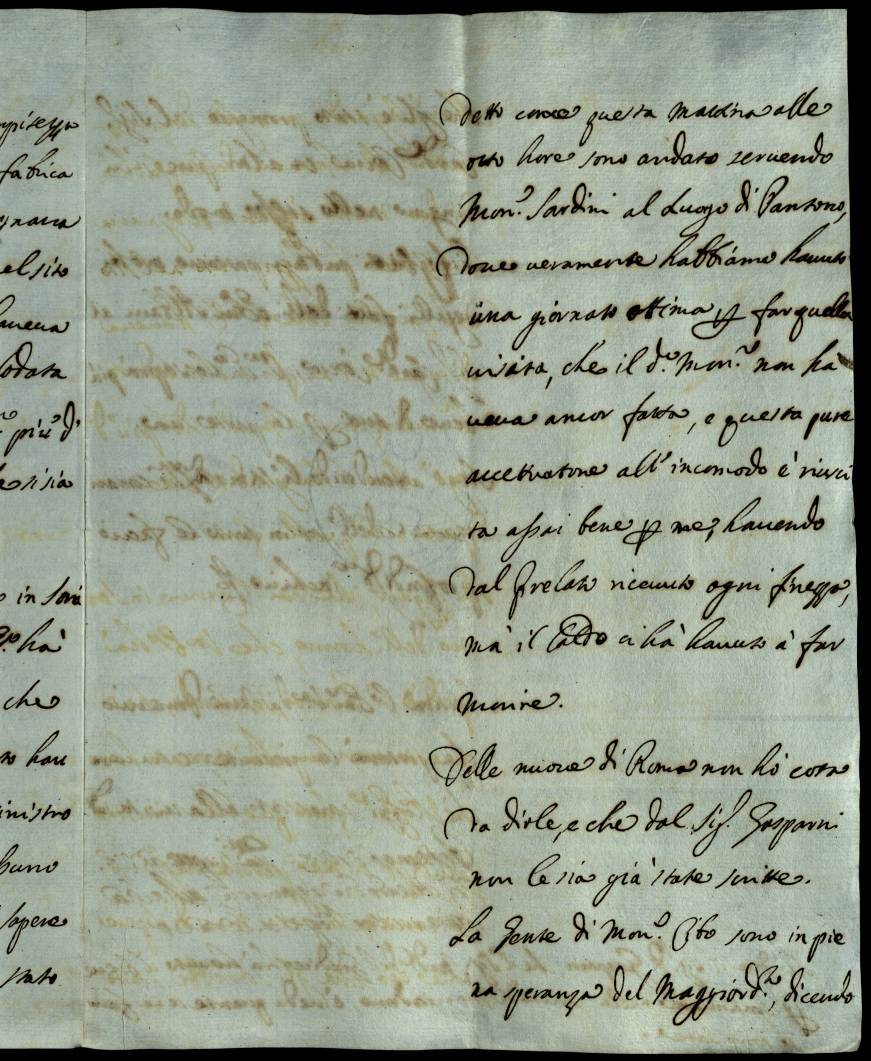 pisezza
fabrica
gnara
el sito
haueua
lodata
più d'
e si sia
in Savi
hà
che
to hau
inistro
hano
sapere
stato
Detto come questa Matina alle
otto hore sono andato seruendo
Mon.re Sardini al Luogo di Pansano,
Doue ueramente habbiamo hauuto
una giornata ottima p far quella
uisita, che il d.o Mon.re non ha
ueua ancor fatta, e questa pure
accettatone all'incomodo è riusci
ta assai bene p me, hauendo
Dal Prelato riceuuto ogni finezza,
mà il Caldo ci hà hauuto à far
morire.
Delle nuoue di Roma non hò cosa
Da dirle, e che dal Sig.r Gasparini
non le sia già state scritte.
La Gente di Mon.re Cibo sono in pie
na speranza del Maggiord.o, dicendo